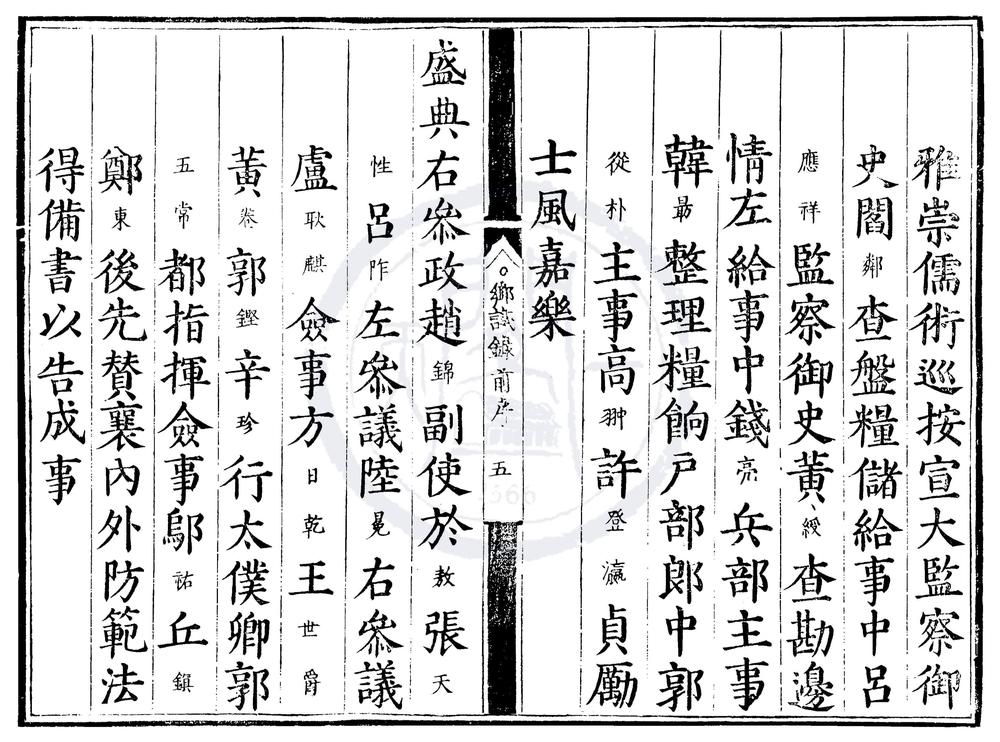 雅崇儒術巡按宣大監察御
史閻鄰查盤糧儲給事中呂
應祥監察御史黃綬查勘邊
情左給事中錢亮兵部主事
韓最整理糧餉戶部郎中郭
從朴主事高翀許登瀛貞厲
士風嘉樂
鄉試錄前序 五
盛典右叅政趙錦副使於敖張天
性呂阼左叅議陸冕右叅議
盧耿麒僉事方日乾王世爵
黃卷郭鏗辛珍行太僕卿郭
五常都指揮僉事鄔祐丘鎮
鄭東後先贊襄內外防範法
得備書以告成事